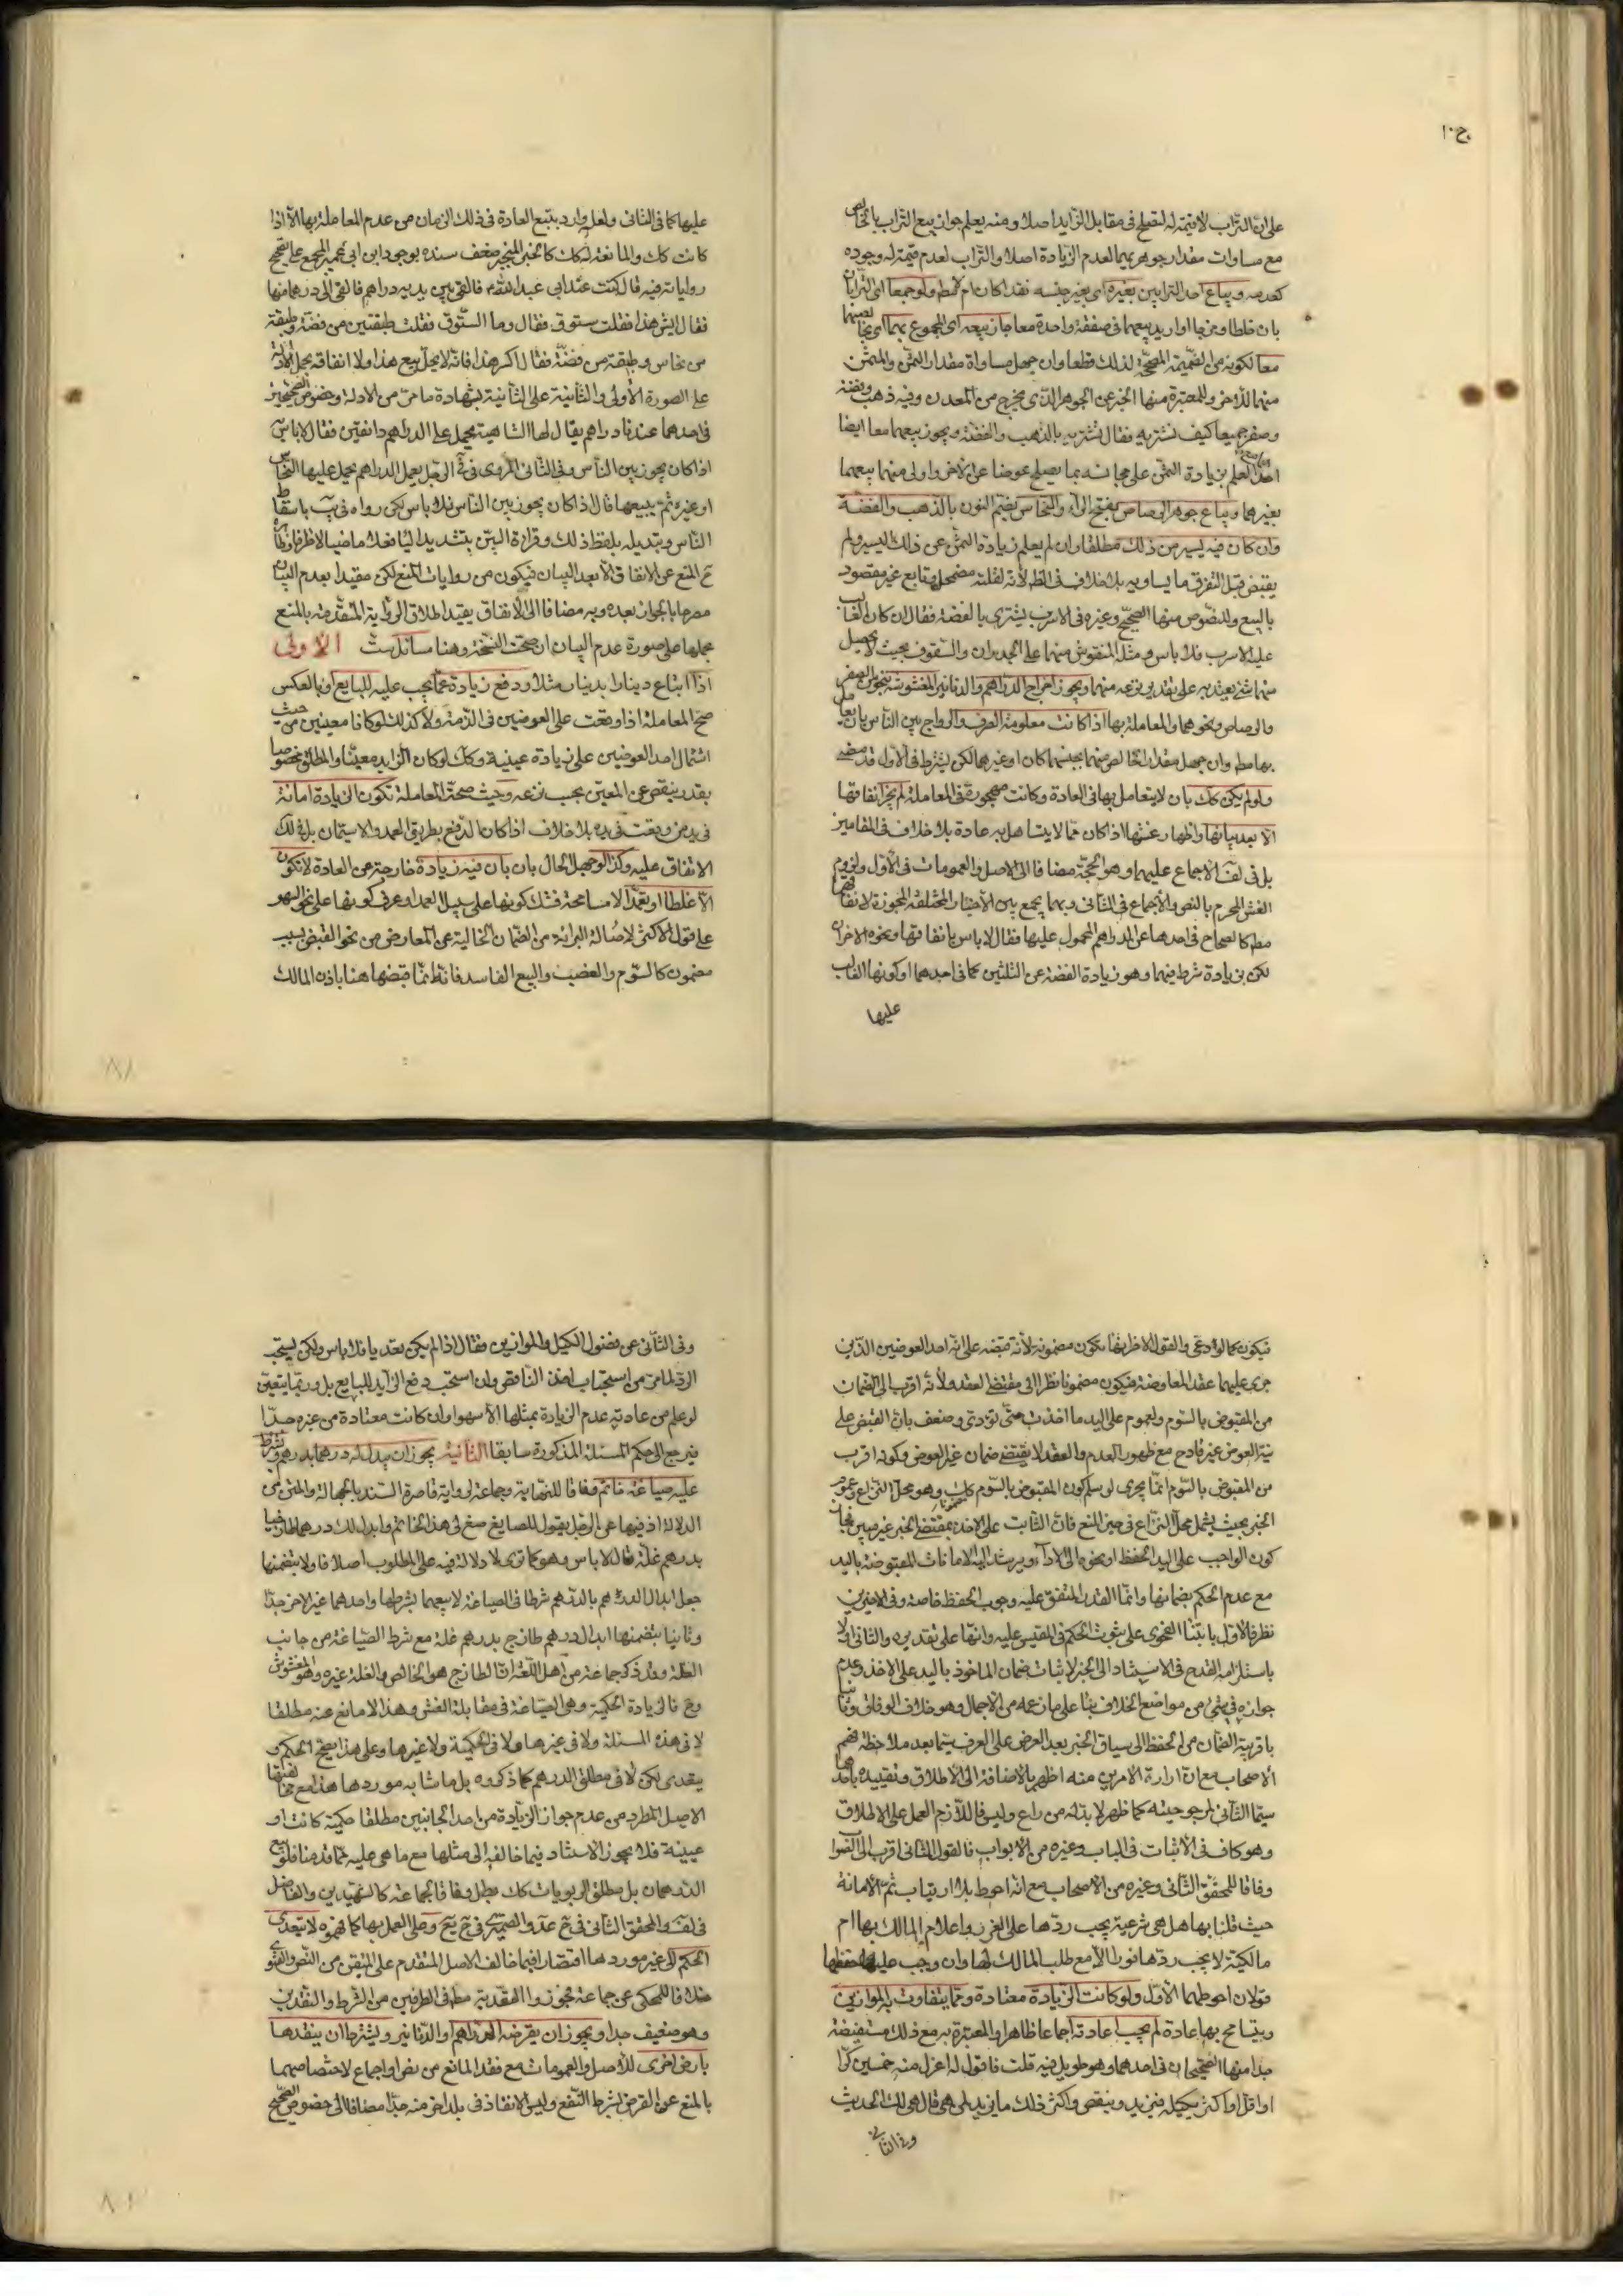 ج١٠
على ان التراب لا قيمة له ليصلح في مقابل الزايد اصلا ومنه يعلم جواز بيع التراب بالخالص
مع مساوات مقدار جوهريهما لعدم الزيادة اصلا والتراب لعدم قيمة له وجوده
كعدمه ويباع احد الترابين بغيره اى بغير جنسه نقدا كان ام لا مط ولو جمعا اى الترابان
بان خلطا ومزجا او اريد بيعهما في صفقة واحدة معا جاز بيعه اى المجموع بهما اى بجنسهما
معا لكونه من الضميمة المصححة لذلك قطعا وان جهل مساواة مقدار الثمن والمثمن
منهما للاخر وللمعتبرة منها الخبر عن الجوهر الذى يخرج من المعدن وفيه ذهب وفضة
وصفر جميعا كيف نشتريه فقال تشتريه بالذهب والفضة ويجوز بيعهما معا ايضا
العلم بزيادة الثمن على مجانسه بما يصلح عوضا عن الاخر واولى منهما بيعهما
بغيرهما ويباع جوهر الرصاص بفتح الراء والنحاس بضم النون بالذهب والفضة
وان كان فيه يسير من ذلك مطلقا وان لم يعلم زيادة الثمن عن ذلك اليسير ولم
يقبض قبل التفرق ما يساويه بلا خلاف في الظ لانه لقلته مضمحل وتابع غير مقصود
بالبيع وللنصوص منها الصحيح وغيره في الاسرب يشترى بالفضة فقال ان كان الغالب
عليه الاسرب فلا باس ومثله المنقوش منهما على الجدران والسقوف بحيث لا يحصل
منهما شئ يعتد به على تقدير نزعه منهما ويجوز اخراج الدراهم والدنانير المغشوشة بنحو من الصفر
والرصاص ونحوهما والمعاملة بها اذا كانت معلومة الصرف والرواج بين الناس بان يعامل
بها مط وان جهل مقدار الخالص منهما بجنسهما كان او غيرهما لكن يشترط في الاول قد مضى
ولو لم يكن كك بان لا يتعامل بها في العادة وكانت مهجورة في المعاملة لم يجز انفاقها
الا بعد بيانها واظهار غشها اذا كان مما لا يتساهل به عادة بلا خلاف في المقامين
بل في لف الاجماع عليهما وهو الحجة مضافا الى الاصل والعمومات في الاول ولزوم
الغش المحرم بالنص والاجماع في الثاني وبهما يجمع بين الاخبار المختلفة المجوزة لانفاقها
مط كالصحاح في احدها عن الدراهم المحمول عليها فقال لا باس بانفاقها ونحوه الاخران
لكن بزيادة شرط فيهما وهو زيادة الفضة عن الثلثين كما في احدهما او كونها الغالب
عليها
عليها كما في الثاني ولعله وارد بتتبع العادة في ذلك الزمان من عدم المعاملة بها الا اذا
كانت كك والمانعة له كك كالخبر المنجبر ضعف سنده بوجود ابن ابي عمير المجمع على تصحيح
رواياته فيه قال كنت عند ابى عبد الله ع فالقى بين يديه دراهم فالقى الى درهما منها
فقال ايش هذا فقلت ستوق فقال وما الستوق فقلت طبقتين من فضة وطبقة
من نحاس وطبقة من فضة فقال اكسر هذا فانه لا يحل بيع هذا ولا انفاقه بحمل الاولة
على الصورة الاولى والثانية على الثانية بشهادة ما مر من الادلة وخصوص الصحيحين
في احدهما عندنا دراهم يقال لها الشاهية تحمل على الدراهم دانقين فقال لا باس
اذا كان يجوز بين الناس وفي الثاني المروى في في الرجل يعمل الدراهم يحمل عليها النحاس
او غيره ثم يبيعها قال اذا كان يجوز بين الناس فلا باس لكن رواه في يب باسقاط
الناس وتبديله بلفظ ذلك وقراءة البين بتشديد اليا فعلا ماضيا لاظهار
ع المنع عن الانفاق الا بعد البيان فيكون من روايات المنع لكن مقيدا بعدم البيان
مصرحا بالجواز بعده وبه مضافا الى الاتفاق يقيد اطلاق الرواية المتقدمة بالمنع
بحملها على صورة عدم البيان ان صحت النسخة وهنا مسائل ست الاولى
اذا ابتاع دينارا بدينار مثلا ودفع زيادة عما يجب عليه للبايع او بالعكس
صح المعاملة اذا وقعت على العوضين في الذمة ولا كذلك لو كانا معينين من حيث
اشتمال احد العوضين على زيادة عينية وكك لو كان الزايد معينا والمطلق مخصوصا
بقدر ينقص عن المعين بحسب نوعه وحيث صحت المعاملة تكون الزيادة امانة
في يد من وقعت في يده بلا خلاف اذا كان الدفع بطريق العمد والاستيمان بل في لك
الاتفاق عليه وكذا لو جهل الحال بان بان فيه زيادة خارجة عن العادة لا تكون
الا غلطا او تعمدا لا مسامحة فشك كونها على سبيل العمد او عرف كونها على نحو السهو
على قول الاكثر لاصالة البرائة من الضمان الخالية عن المعارض من نحو القبض بسبب
مضمون كالسوم والغصب والبيع الفاسد فانه انما قبضها هنا باذن المالك
فيكون كما لو ادعى والقول الاظهر انها تكون مضمونه لانه قبضه على انه احد العوضين الذين
جرى عليهما عقد المعاوضة فيكون مضمونا نظرا الى مقتضى العقد ولانه اقرب الى الضمان
من المقبوض بالسوم ولعموم على اليد ما اخذت حتى تؤدى وضعف بان القبض على
نية العوض غير قادح مع ظهور العدم والعقد لا يقتضى ضمان غير العوض وكونه اقرب
من المقبوض بالسوم انما يجرى لو سلم كون المقبوض بالسوم كك وهو محل النزاع وعموم
الخبر بحيث يشمل محل النزاع في حيز المنع فان الثابت على الاخذ بمقتضى الخبر غير مبين فجاز
كون الواجب على اليد الحفظ او نحوه الى الاداء ويرشد اليه الامانات المقبوضة باليد
مع عدم الحكم بضمانها وانما القدر المتفق عليه وجوب الحفظ خاصة وفي الاخيرين
نظر فالاول بابتناء الفحوى على ثبوت الحكم في المقيس عليه وانها على تقديره والثاني اولا
باستلزامه القدح في الاستناد الى الخبر لاثبات ضمان الماخوذ باليد على الاخذ وعدم
جوازه في شئ من مواضع الخلاف بناء على ما زعمه من الاجمال وهو خلاف الوفاق وثانيا
باقربية الضمان من الحفظ الى سياق الخبر بعد العرض على العرف سيما بعد ملاحظة فهم
الاصحاب مع ان ارادة الامرين منه اظهر بالاضافة الى الاطلاق وتقييده باحدهما
سيما الثاني لمرجوحيته كما ظهر لا بد له من داع وليس فاللازم العمل على الاطلاق
وهو كاف في الاثبات في الباب وغيره من الابواب فالقول الثاني اقرب الى الصواب
وفاقا للمحقق الثاني وغيره من الاصحاب مع انه احوط بلا ارتياب ثم الامانة
حيث قلنا بها هل هي شرعية يجب ردها على الفور واعلام المالك بها ام
مالكية لا يجب ردها فورا الا مع طلب المالك لها وان وجب عليه حفظها
قولان احوطهما الاول ولو كانت الزيادة معتادة ومما يتفاوت به الموازين
ويتسامح بها عادة لم يجب اعادته اجماعا ظاهرا والمعتبرة به مع ذلك مستفيضة
جدا منها الصحيحان في احدهما وهو طويل فيه قلت فاقول له اعزل منه خمسين كرا
او اقل او اكثر بكيله فيزيد وينقص واكثر ذلك ما يزيد لمن هي قال هي لك الحديث
وفي الثاني
وفي الثاني عن فضول الكيل والموازين فقال اذا لم يكن تعديا فلا باس ولكن يستحب
الرد لما مر من استحباب اخذ الناقص وان استحب دفع الزايد للبايع بل وربما يتعين
لو علم من عادته عدم الزيادة بمثلها الا سهوا وان كانت معتادة من غيره جدا
فيرجع الى حكم المسئلة المذكورة سابقا الثانية يجوز ان يبدل له درهما بدرهم ويشترط
عليه صياغة خاتم وفاقا للنهاية وجماعة لرواية قاصرة السند بالجهالة والمتن من
الدلالة اذ فيها عن الرجل يقول للصايغ صغ لى هذا الخاتم وابدل لك درهما طازجيا
بدرهم غلة قال لا باس وهو كما ترى لا دلالة فيه على المطلوب اصلا فاولا بتضمنها
جعل ابدال الدرهم بالدرهم شرطا في الصياغة لا بيعهما بشرطها واحدهما غير الاخر جدا
وثانيا بتضمنها ابدال درهم طازج بدرهم غلة مع شرط الصياغة من جانب
الغلة وقد ذكر جماعة من اهل اللغة ان الطازج هو الخالص والغلة غيره وهو المغشوش
وح فالزيادة الحكمية وهي الصياغة في مقابلة الغش وهذا لا مانع منه مطلقا
لا في هذه المسئلة ولا في غيرها ولا في الحكمية ولا غيرها وعلى هذا يصح الحكم و
يتعدى لكن لا في مطلق الدرهم كما ذكروه بل ما شابه موردها هذا مع مخالفتها
الاصل المطرد من عدم جواز الزيادة من احد الجانبين مطلقا حكمية كانت او
عينية فلا يجوز الاستناد فيما خالفه الى مثلها مع ما هي عليه مما قدمنا فلو بيع
الدرهمان بل مطلق الربويات كك بطل وفاقا لجماعة كالشهيدين والفاضل
في لف والمحقق الثاني في ع عد والصيمرى في ح يع وعلى العمل بها كما فهموه لا يتعدى
الحكم الى غير موردها اقتصارا فيما خالف الاصل المتقدم على المتيقن من النص والفتوى
خلافا للمحكى عن جماعة فجوزوا التعدية مط في الطرفين من الشرط والنقدين
وهو ضعيف جدا ويجوز ان يقرضه الدراهم او الدنانير ويشترط ان ينقدها
بارض اخرى للاصل والعمومات مع فقد المانع من نص او اجماع لاختصاصهما
بالمنع عن القرض بشرط النفع وليس الانقاذ في بلد اخر منه جدا مضافا الى خصوص الصحيح